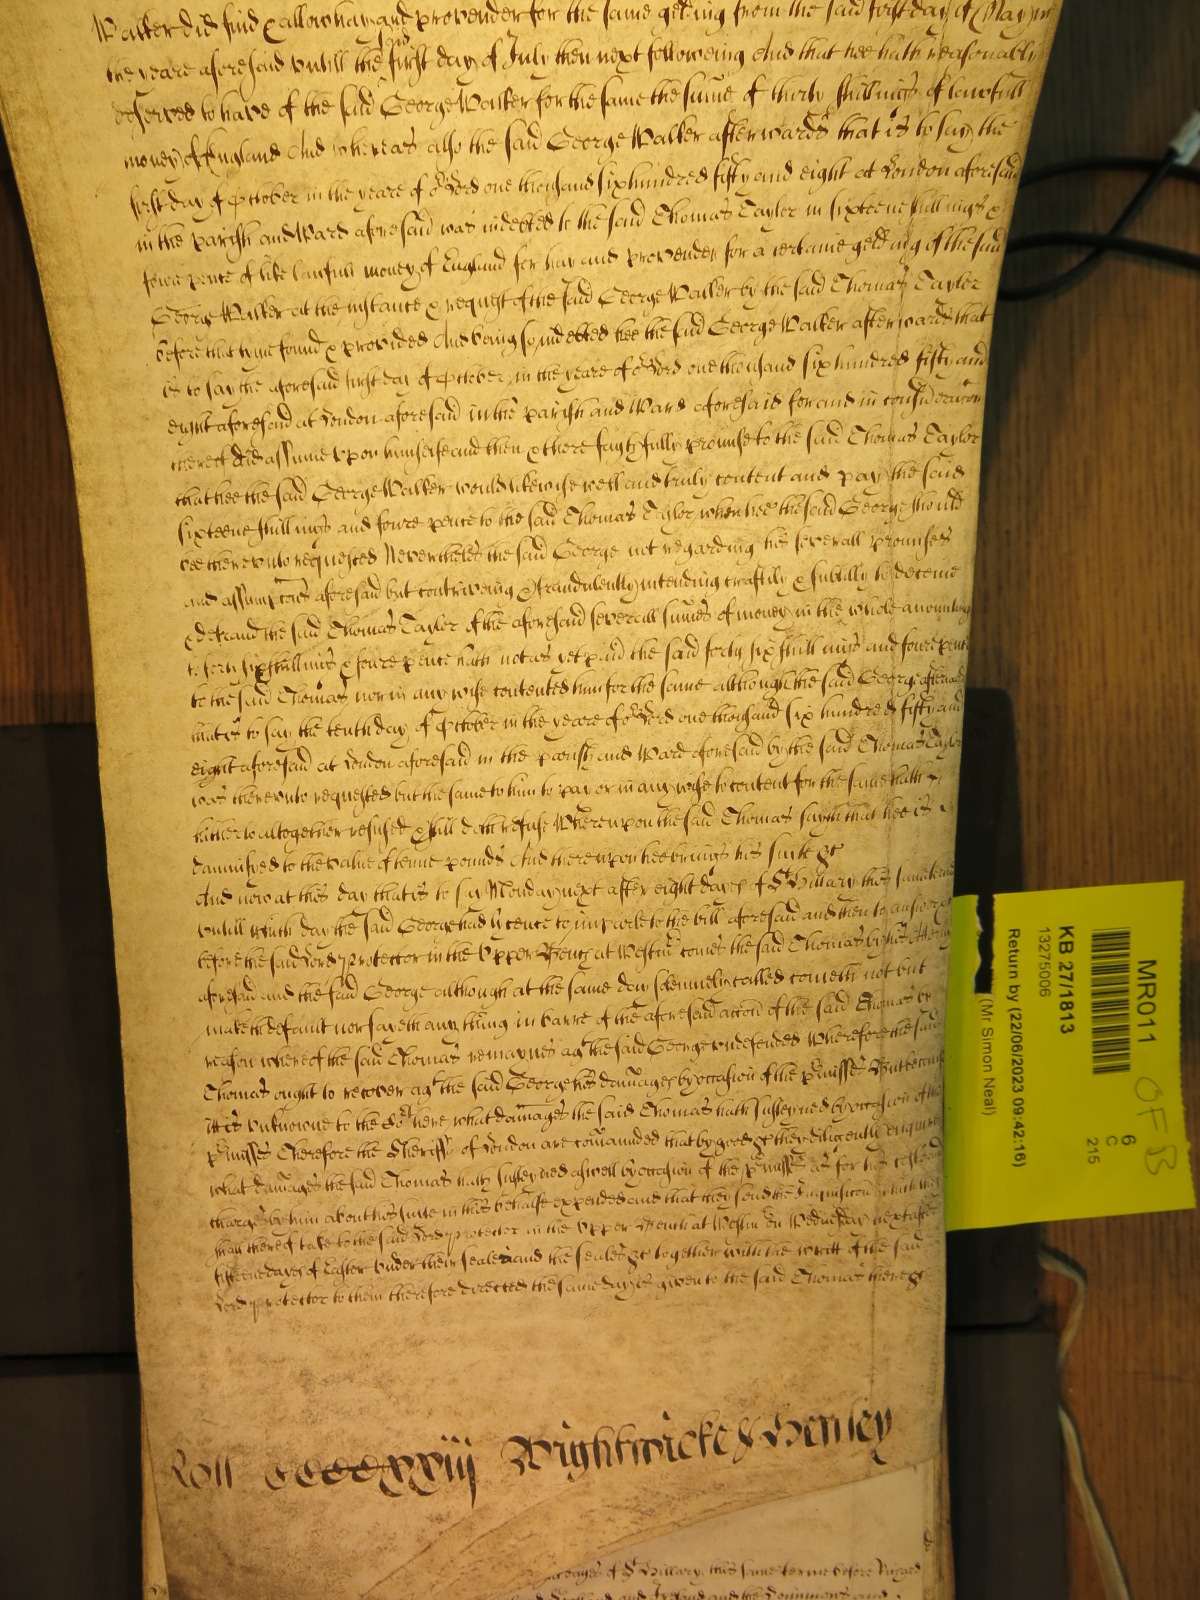 Walker did find & allow hay and provender for the same gelding from the said first day of May in
the yeare aforesaid untill the first day of July then next followeing And that hee hath reasonably
deserved to have of the said George Walker for the same the sume of thirty shillings of lawfull
money of England And whereas also the said George Walker afterwards that is to say the
first day of October in the yeare of or Lord one thousand six hundred fifty and eight at London aforesaid
in the parish and Ward aforesaid was indebted to the said Thomas Taylor in sixteene shillings &
foure pence of like lawfull money of England for hay and provender for a certaine gelding of the said
George Walker at the instance & request of the said George Walker by the said Thomas Taylor
before that tyme found & provided And being so indebted hee the said George Walker afterwards that
is to say the aforesaid first day of October in the yeare of or Lord one thousand six hundred fifty and
eight aforesaid at London aforesaid in the parish and Ward aforesaid for and in consideracon
thereof did assume upon himselfe and then & there faythfully promise to the said Thomas Taylor
that hee the said George Walker would likewise well and truly content and pay the said
sixteene shillings and foure pence to the said Thomas Taylor when hee the said George should
bee thereunto requested Neverthelesse the said George not regarding his severall promises
and assumpcons aforesaid but contriveing & fraudulently intending craftily & subtilly to deceive
& defraud the said Thomas Taylor of the aforesaid severall sumes of money in the whole amounting
to forty six shillings & foure pence hath not as yet paid the said forty six shillings and foure pence
to the said Thomas nor in any wise contented him for the same although the said George afterwards
that is to say the tenth day of October in the yeare of or Lord one thousand six hundred fifty and
eight aforesaid at London aforesaid in the parish and Ward aforesaid by the said Thomas Taylor
was thereunto requested but the same to him to pay or in any wise to content for the same hath
hitherto altogether refused & still doth refuse Whereupon the said Thomas sayth that hee is
damnifyed to the value of tenne pounds And thereupon hee brings his suite &c
And now at this day that is to say Monday next after eight dayes of St Hillary this same terme
untill which day the said George had lycence to imparle to the bill aforesaid and then to answere &c
before the said Lord Protector in the Upper Bench at Westmr comes the said Thomas by his Attorney
aforesaid and the said George although at the same day solemnely called cometh not but
maketh default nor sayeth any thing in barre of the aforesaid accon of the said Thomas by
reason whereof the said Thomas remaynes agt the said George undefended Wherefore the said
Thomas ought to recover agt the said George his damages by occasion of the pmisses But because
it is unknowne to the Cort here what damages the said Thomas hath susteyned by occasion of the
pmisses Therefore the Sheriffs of London are comaunded that by good &c they diligently enquire
what damages the said Thomas hath susteyned aswell by occasion of the pmisses as for his costs and
charges by him about his suite in this behalfe expended and that they send the Inquisicon which they
shall thereof take to the said Lord Protector in the Upper Bench at Westmr on Wednesday next after
fifteene dayes of Easter under their seales and the seales &c together with the writt of the said
Lord Protector to them therefore directed the same day is given to the said Thomas there &c
Roll CCCCxxiij Wightwicke & Henley
dayes of St Hillary this same terme before Richard
MR011
OF B
6
C
215
KB 27/1813
13275006
Return by (22/06/2023 09:42:16)
(Mr Simon Neal)